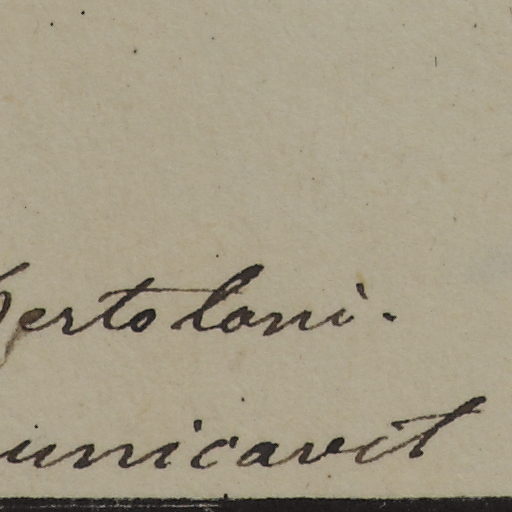 Bertoloni.
unicavit